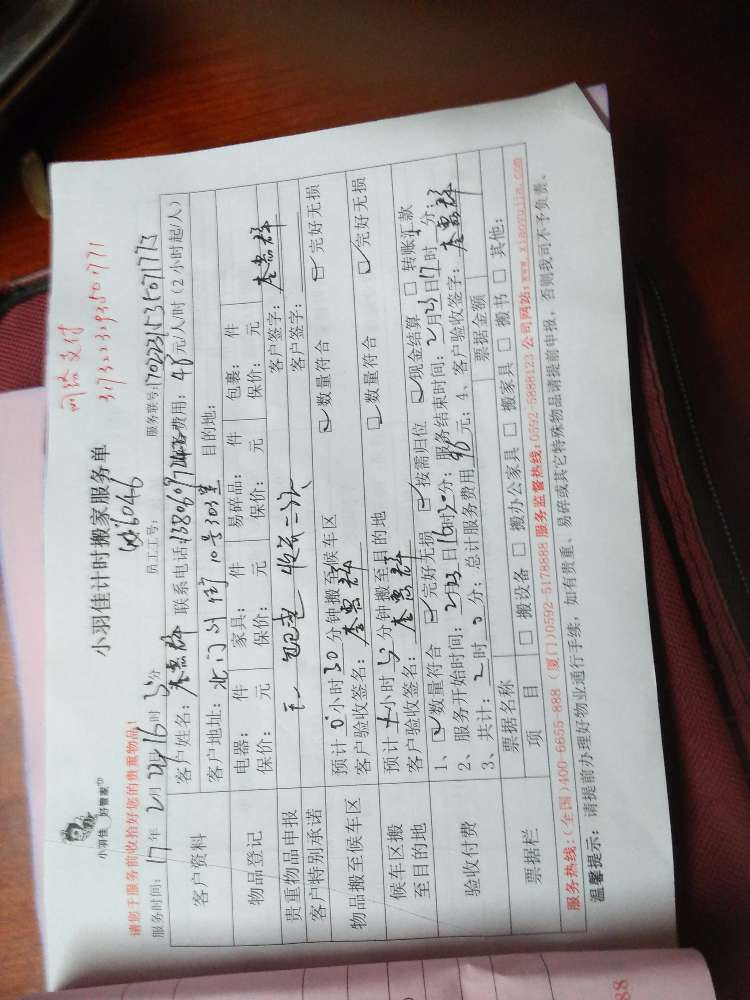 网络支付
31732131935077​1
小羽佳 好管家
小羽佳计时搬家服务单
请您于服务前收拾好您的贵重物品!
员工工号: 6046
服务联号:
服务时间: 17年2月22日16时30分
客户资料
客户姓名: 联系电话: 费用: 48元/人/时(2小时起/人)
客户地址: 10号301室 目的地:
物品登记
电器: 件 家具: 件 易碎品: 件 包裹: 件
保价: 元 保价: 元 保价: 元 保价: 元
贵重物品申报 客户签字:
客户特别承诺 客户签字:
物品搬至候车区
预计0小时30分钟搬至候车区 数量符合 完好无损
客户验收签名:
候车区搬至目的地
预计 小时 分钟搬至目的地 数量符合 完好无损
客户验收签名:
验收付费
1、数量符合 完好无损 按需归位 现金结算 转账汇款
2、服务开始时间: 2月23日16时30分; 服务结束时间: 2月23日17时 分;
3、共计: 2时0分; 总计服务费用96元; 4、客户验收签字:
票据栏
票据名称 票据金额
项目 搬设备 搬办公家具 搬家具 搬书 其他:
服务热线:(全国)400-6655-888 (厦门)0592-5178888 服务监督热线:0592-5888123 公司网站:www.xiaoyujia.com
温馨提示: 请提前办理好物业通行手续, 如有贵重、易碎或其它特殊物品请提前申报, 否则我司不予负责。
88